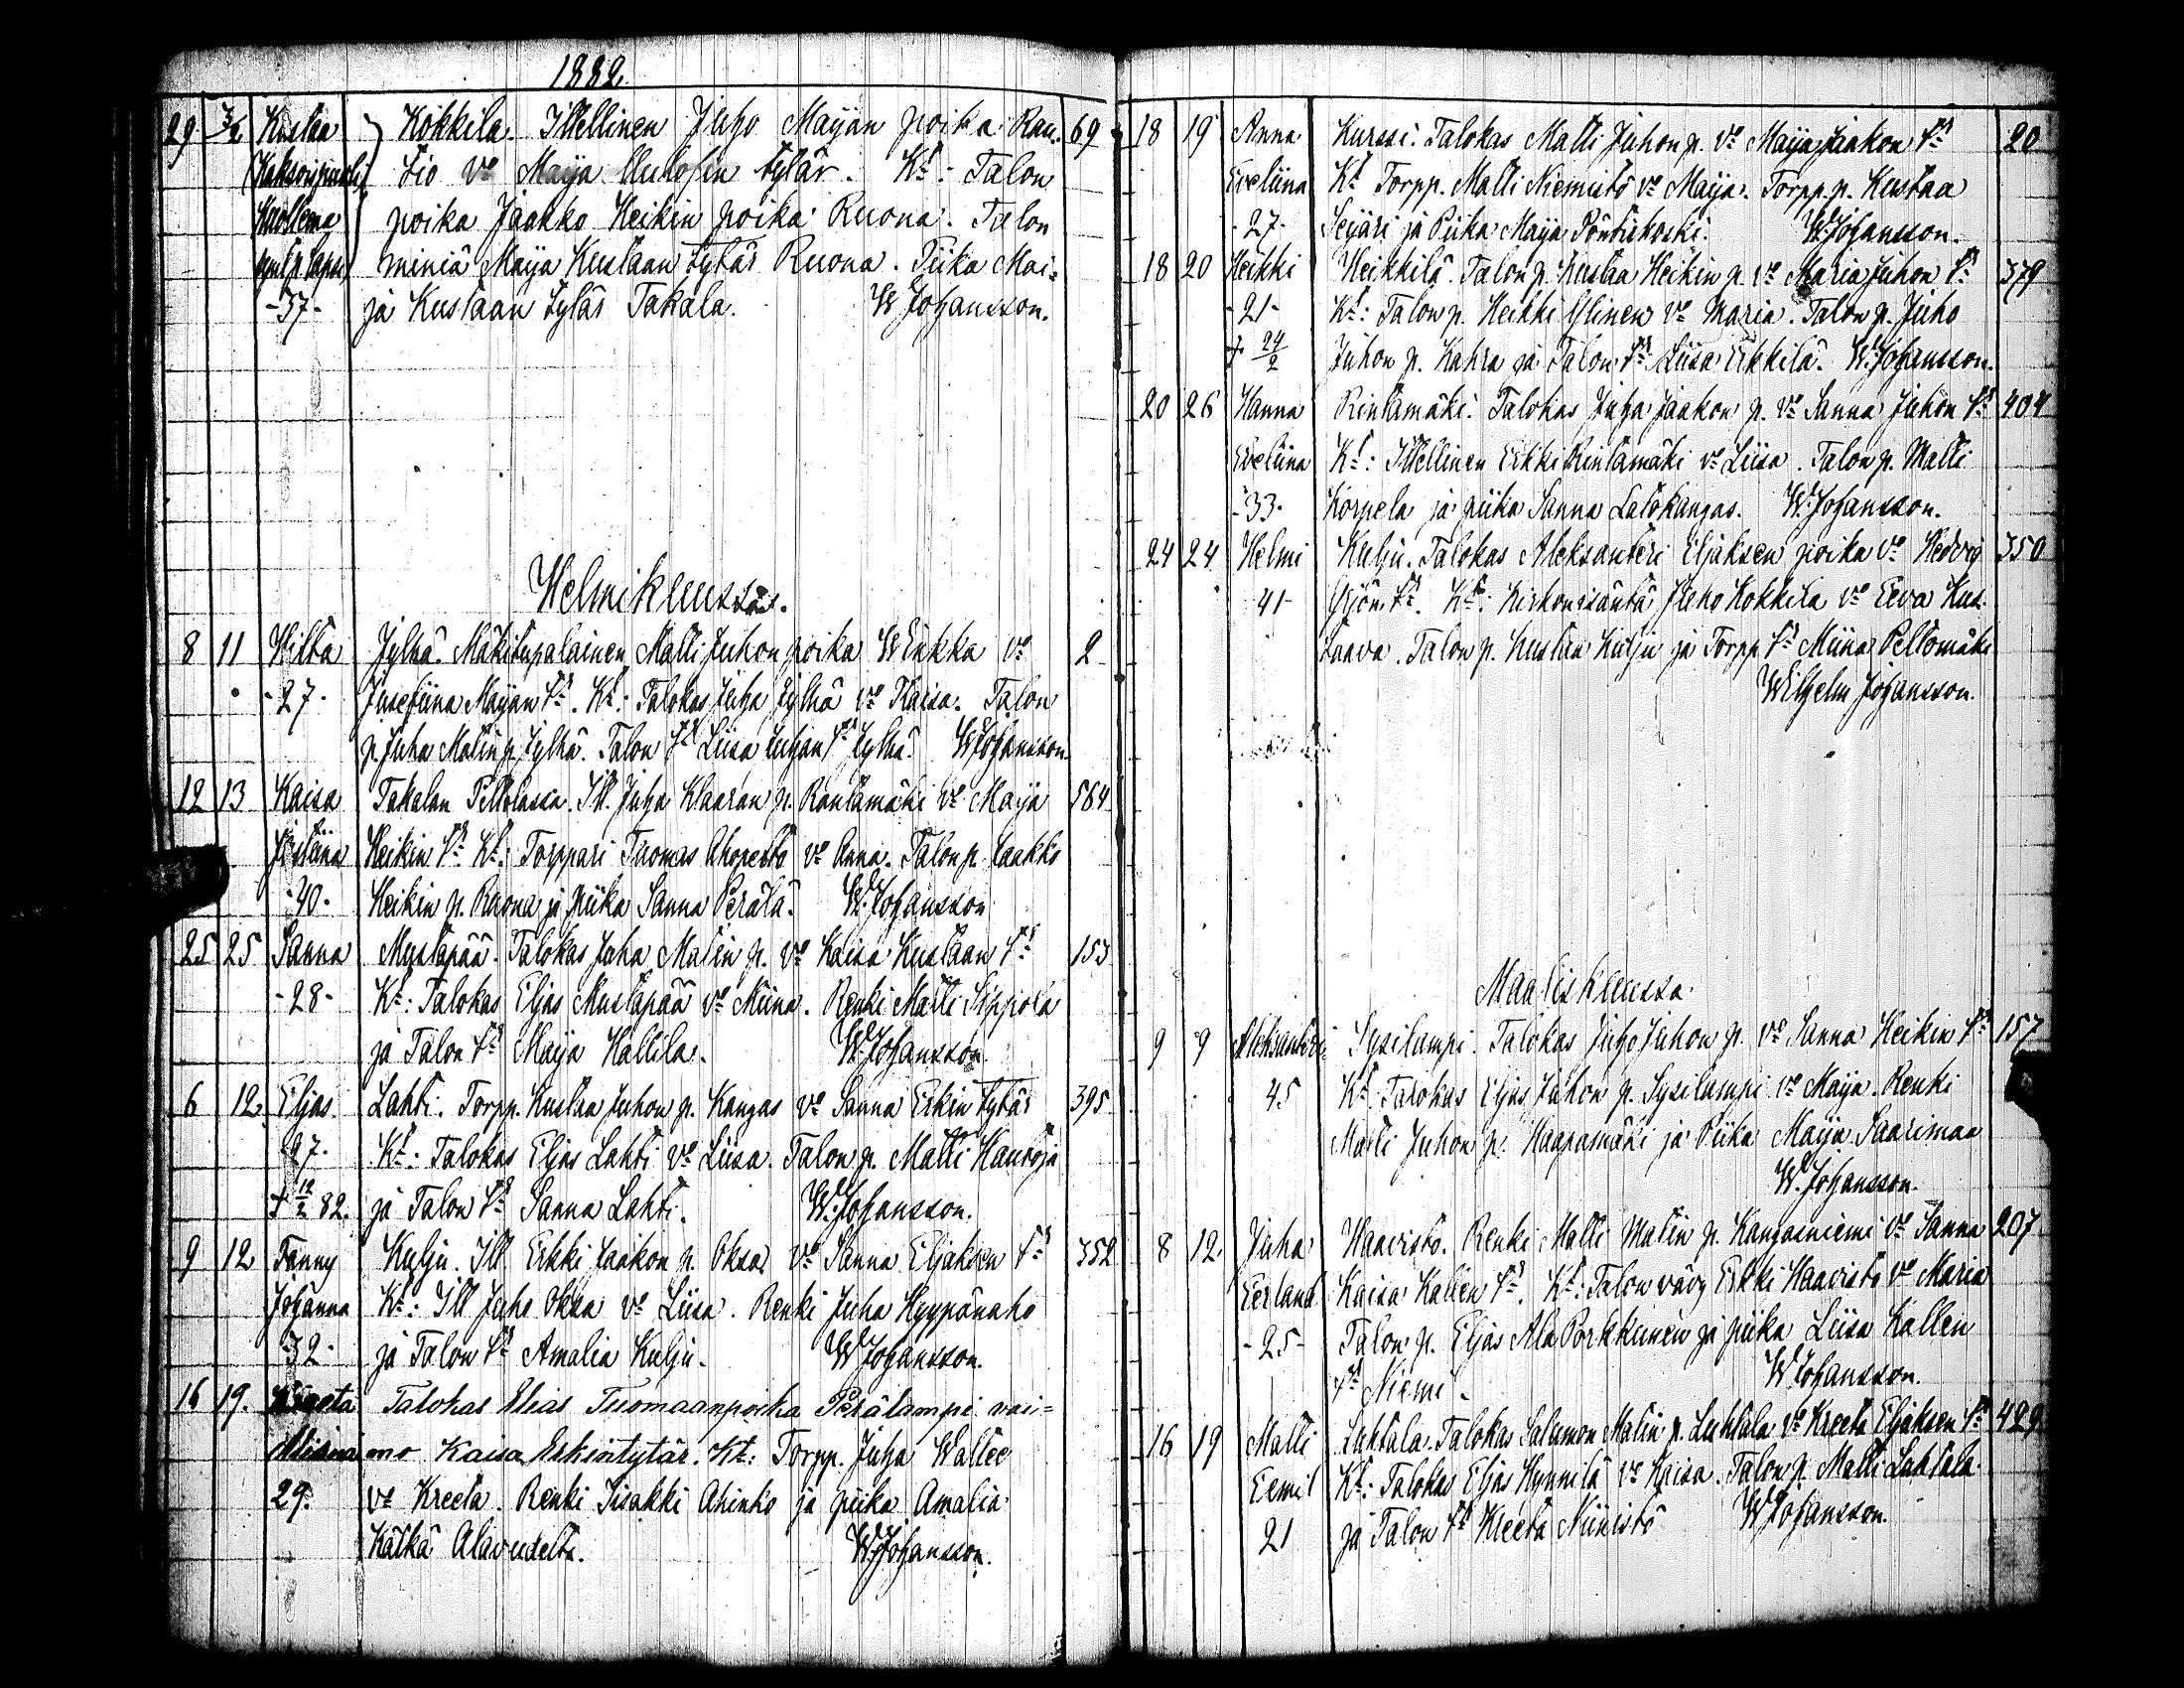 1882.
29 3/2 Kustaa Kokkila. Itsellinen Juho Maijan poika Rau- 69
(Kaksoispuoli tio vo Maija tytär. Kt: Talon
Kuollena poika Jaakko Heikin poika Ruona. Talon
synt. p. lapsi) miniä Maija Kustaan tytär Ruona. Piika Mai=
-37- ja Kustaan tytär Takala. W Johansson.
Helmikuussa.
8 11 Hilta Jylhä. Mäkitupalainen Matti Juhon poika Winkka vo 2
-27- Josefiina Maijan tr. Kt: Talokas Juha Jylhä vo Kaisa. Talon
p. Juha Matin p. Jylhä. Talon tr Liisa Juhan tr Jylhä. W Johansson.
12 13 Kaisa Takalan Peltolassa. Itl. Juha Klaaran p. Rantamäki vo Maija 564
Justiina Heikin tr Kt: Torppari Tuomas Ahopelto vo Anna. Talon p. Jaakko
-40- Heikin p. Ruona ja piika Sanna Perälä. W. Johansson
25 25 Sanna Mustapää. Talokas Juha Matin p. vo Kaisa Kustaan tr 153
-28- Kt: Talokas Eljas Mustapää vo Miina. Renki Matti Sippola
ja Talon tr Maija Hallila. W. Johansson.
6 12 Eljas Lahti. Torpp. Kustaa Juhon p. Kangas vo Sanna Erkin tytär 395
27. Kt: Talokas Eljas Lahti vo Liisa. Talon p. Matti Hauroja
+ 12/2 82. ja Talon tr Sanna Lahti. W. Johansson.
9 12 Fanny Kulju. Itl. Erkki Jaakon p. Oksa vo Sanna Eljaksen tr 352
Johanna Kt: Itl Juho Oksa vo Liisa. Renki Juha Hyypänaho
32- ja Talon tr Amalia Kulju. W Johansson.
16 19. Kreeta Talokas Elias Tuomaanpoika Perälampi vai=
Miina mo Kaisa Erkintytär. Kt: Torpp. Juha Wallee
29. vo Kreeta. Renki Iisakki Ahinko ja piika Amalia
Kätkä Alavudelta. W. Johansson.
18 19 Anna Kurssi. Talokas Matti Juhon p. vo Maija Jaakon tr 20
Eveliina Kt Torpp. Matti Niemistö vo Maija. Torpp. p. Kustaa
-27- Seijäri ja Piika Maija Pöntiskoski. W. Johansson.
18 20 Heikki Heikkilä. Talon p. Kustaa Heikin p. vo Maria Juhon tr 379
-21- Kt: Talon p. Heikki Ylinen vo Maria. Talon p. Juho
+ 24/2 Juhon p. Kahra ja Talon tr Liisa Erkkilä. W. Johansson.
20 26 Hanna Rintamäki. Talokas Juha Jaakon p. vo Sanna Juhon tr 404
Eveliina Kt: Itsellinen Erkki Rintamäki vo Liisa. Talon p. Matti
-33- Korpela ja piika Sanna Latokangas. W. Johansson.
24 24 Helmi Kulju. Talokas Aleksanteri Eljaksen poika vo Hedvig 350
41- Yrjön tr. Kt: Kirkonisäntä Juho Kokkila vo Eeva Kus-
taava. Talon p. Kustaa Kulju ja Torpp tr Miina Peltomäki
Wilhelm Johansson.
Maaliskuussa.
9 9 Aleksanteri Sysilampi. Talokas Juho Juhon p. vo Sanna Heikin tr 157
45 Kt: Talokas Eljas Juhon p. Sysilampi vo Maija. Renki
Matti Juhon p. Haapamäki ja Piika Maija Saarimaa
W. Johansson.
8 12 Juha Haavisto. Renki Matti Matin p. Kangasniemi vo Sanna 207
Eerland Kaisa Kallen tr. Kt: Talon vävy Erkki Haavisto vo Maria
-25- Talon p. Eljas Ala Porkkunen ja piika Liisa Kallen
tr Niemi. W Johansson.
16 19 Matti Luhtala. Talokas Salumon Matin p. Luhtala vo Kreeta Eljaksen tr 429
Eemil Kt: Talokas Eljas Hynnilä vo Kaisa. Talon p. Matti Luhtala
21 ja Talon tr Kreeta Niinistö W Johansson.